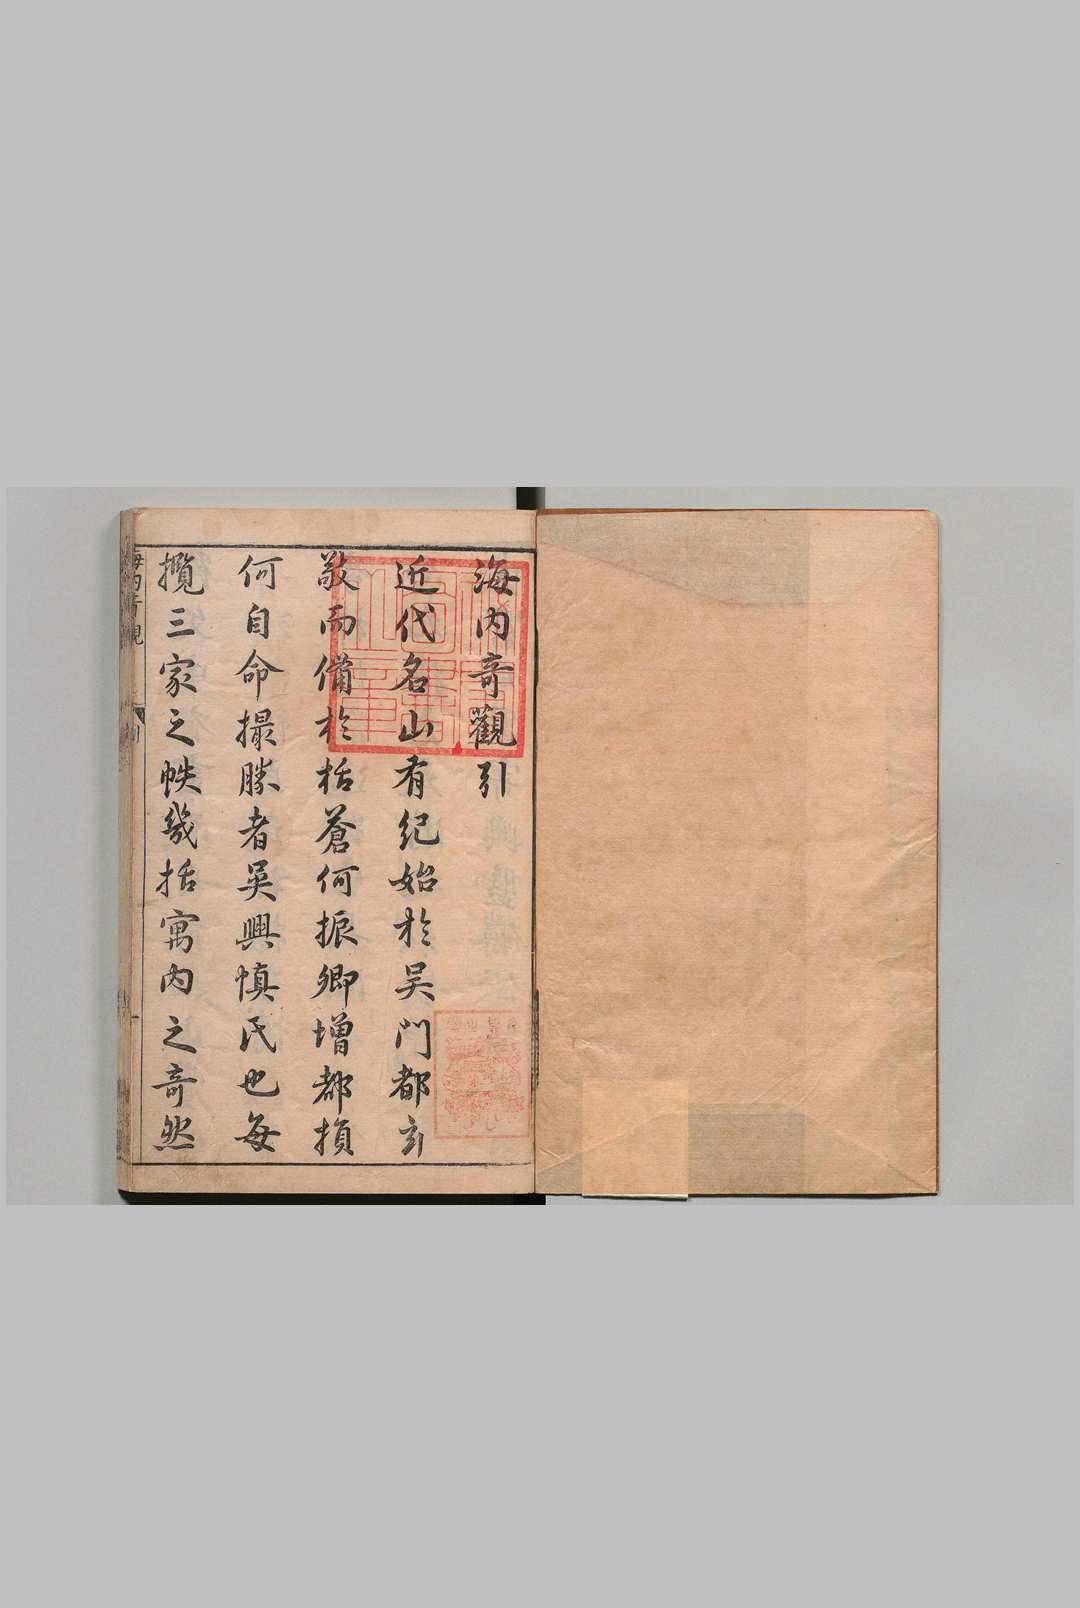 海内奇觀引
近代名山有紀始於吴門都玄
敬而備於栝蒼何振卿増都損
何自命撮勝者吴興慎氏也每
攬三家之帙幾括寓内之奇然
海内奇觀
引